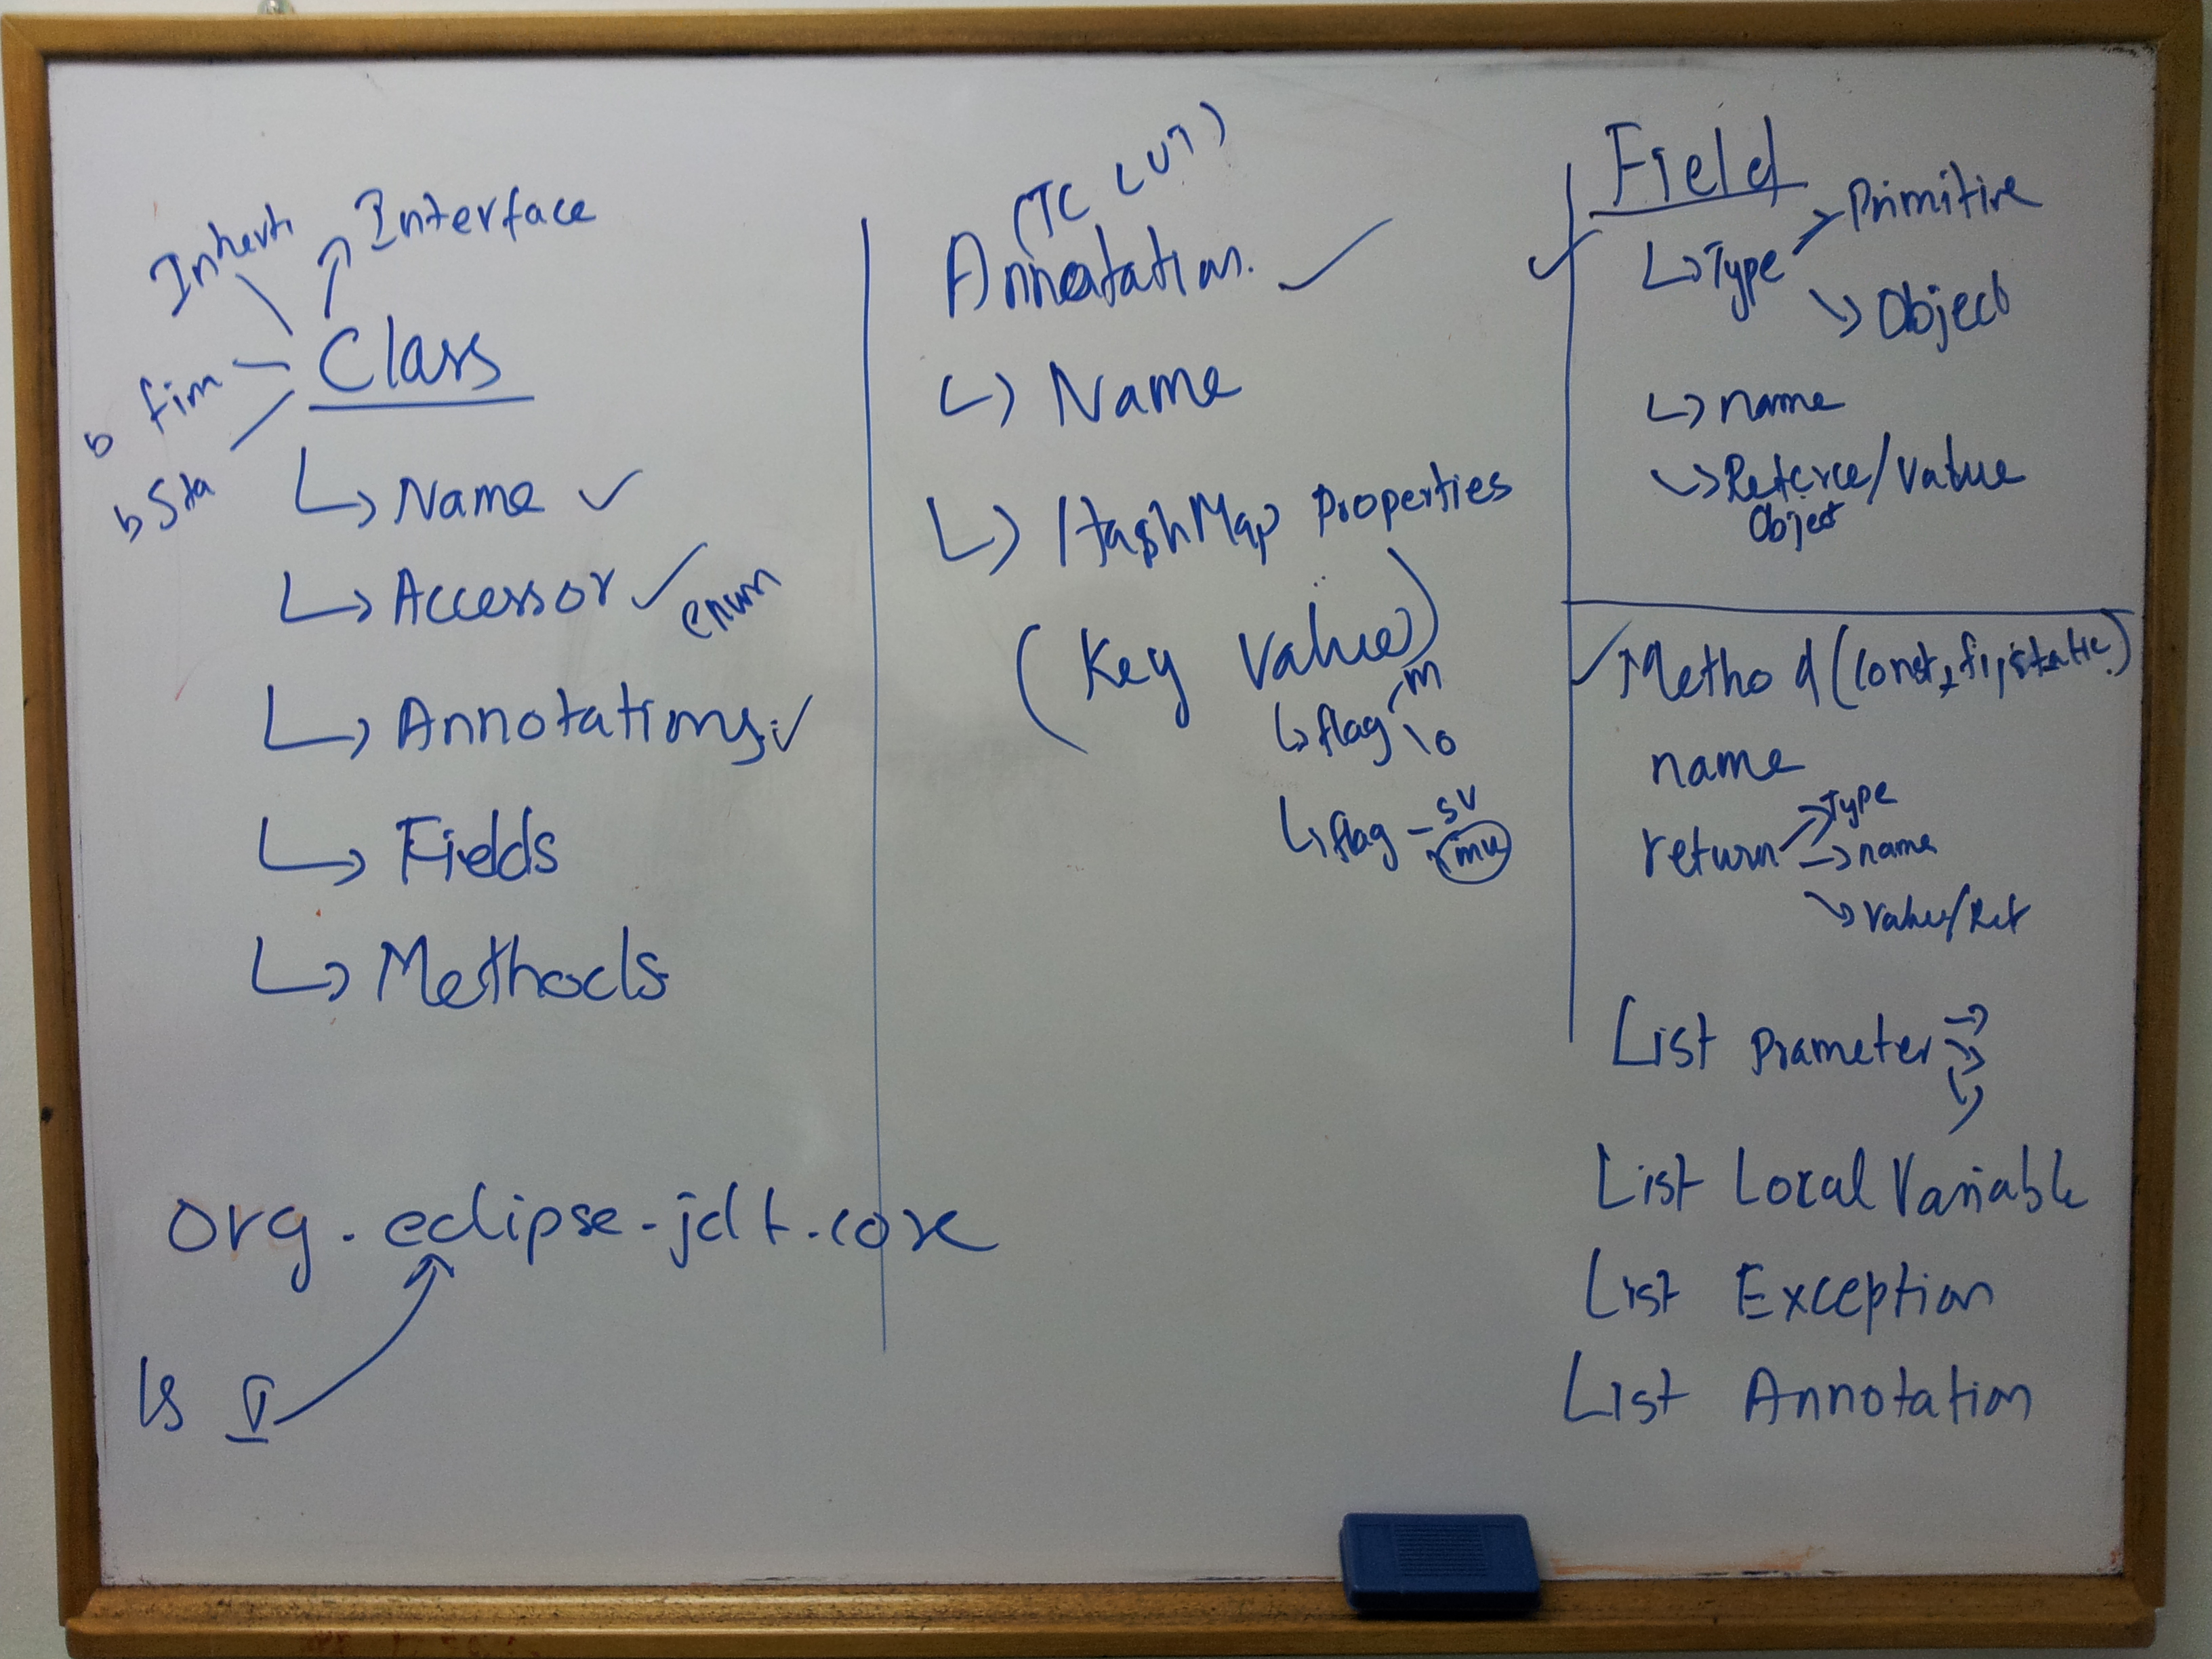 Inherti
Interface
Class
b fim
b Sta
Name ✓
Accessor ✓ enum
Annotations ✓
Fields
Methods
org.eclipse.jdt.core
Annotation. ✓
Name
HashMap Properties
(Key Value)
flag m
o
flag - sv
mu
✓ Field
Type
Primitive
Object
name
Referce/Value
Object
✓ Method (const, fi, static)
name
return
Type
name
Value/Ref
List Prameter
List Local Variable
List Exception
List Annotation